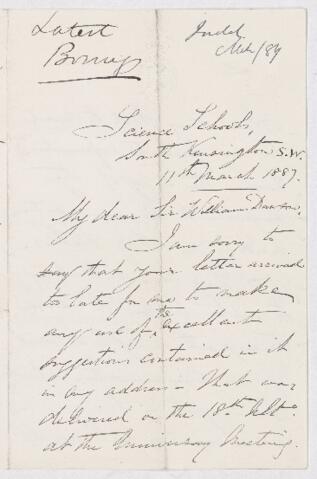 Latest
Bonney
Science Schools,
South Kensington S.W.
11th March 1887.
My dear Sir William Dawson,
I am sorry to
say that your letter arrived
too late for me to make
any use of the excellent
suggestions contained in it
in my address - That was
delivered on the 18th ult.
at the Anniversary Meeting.